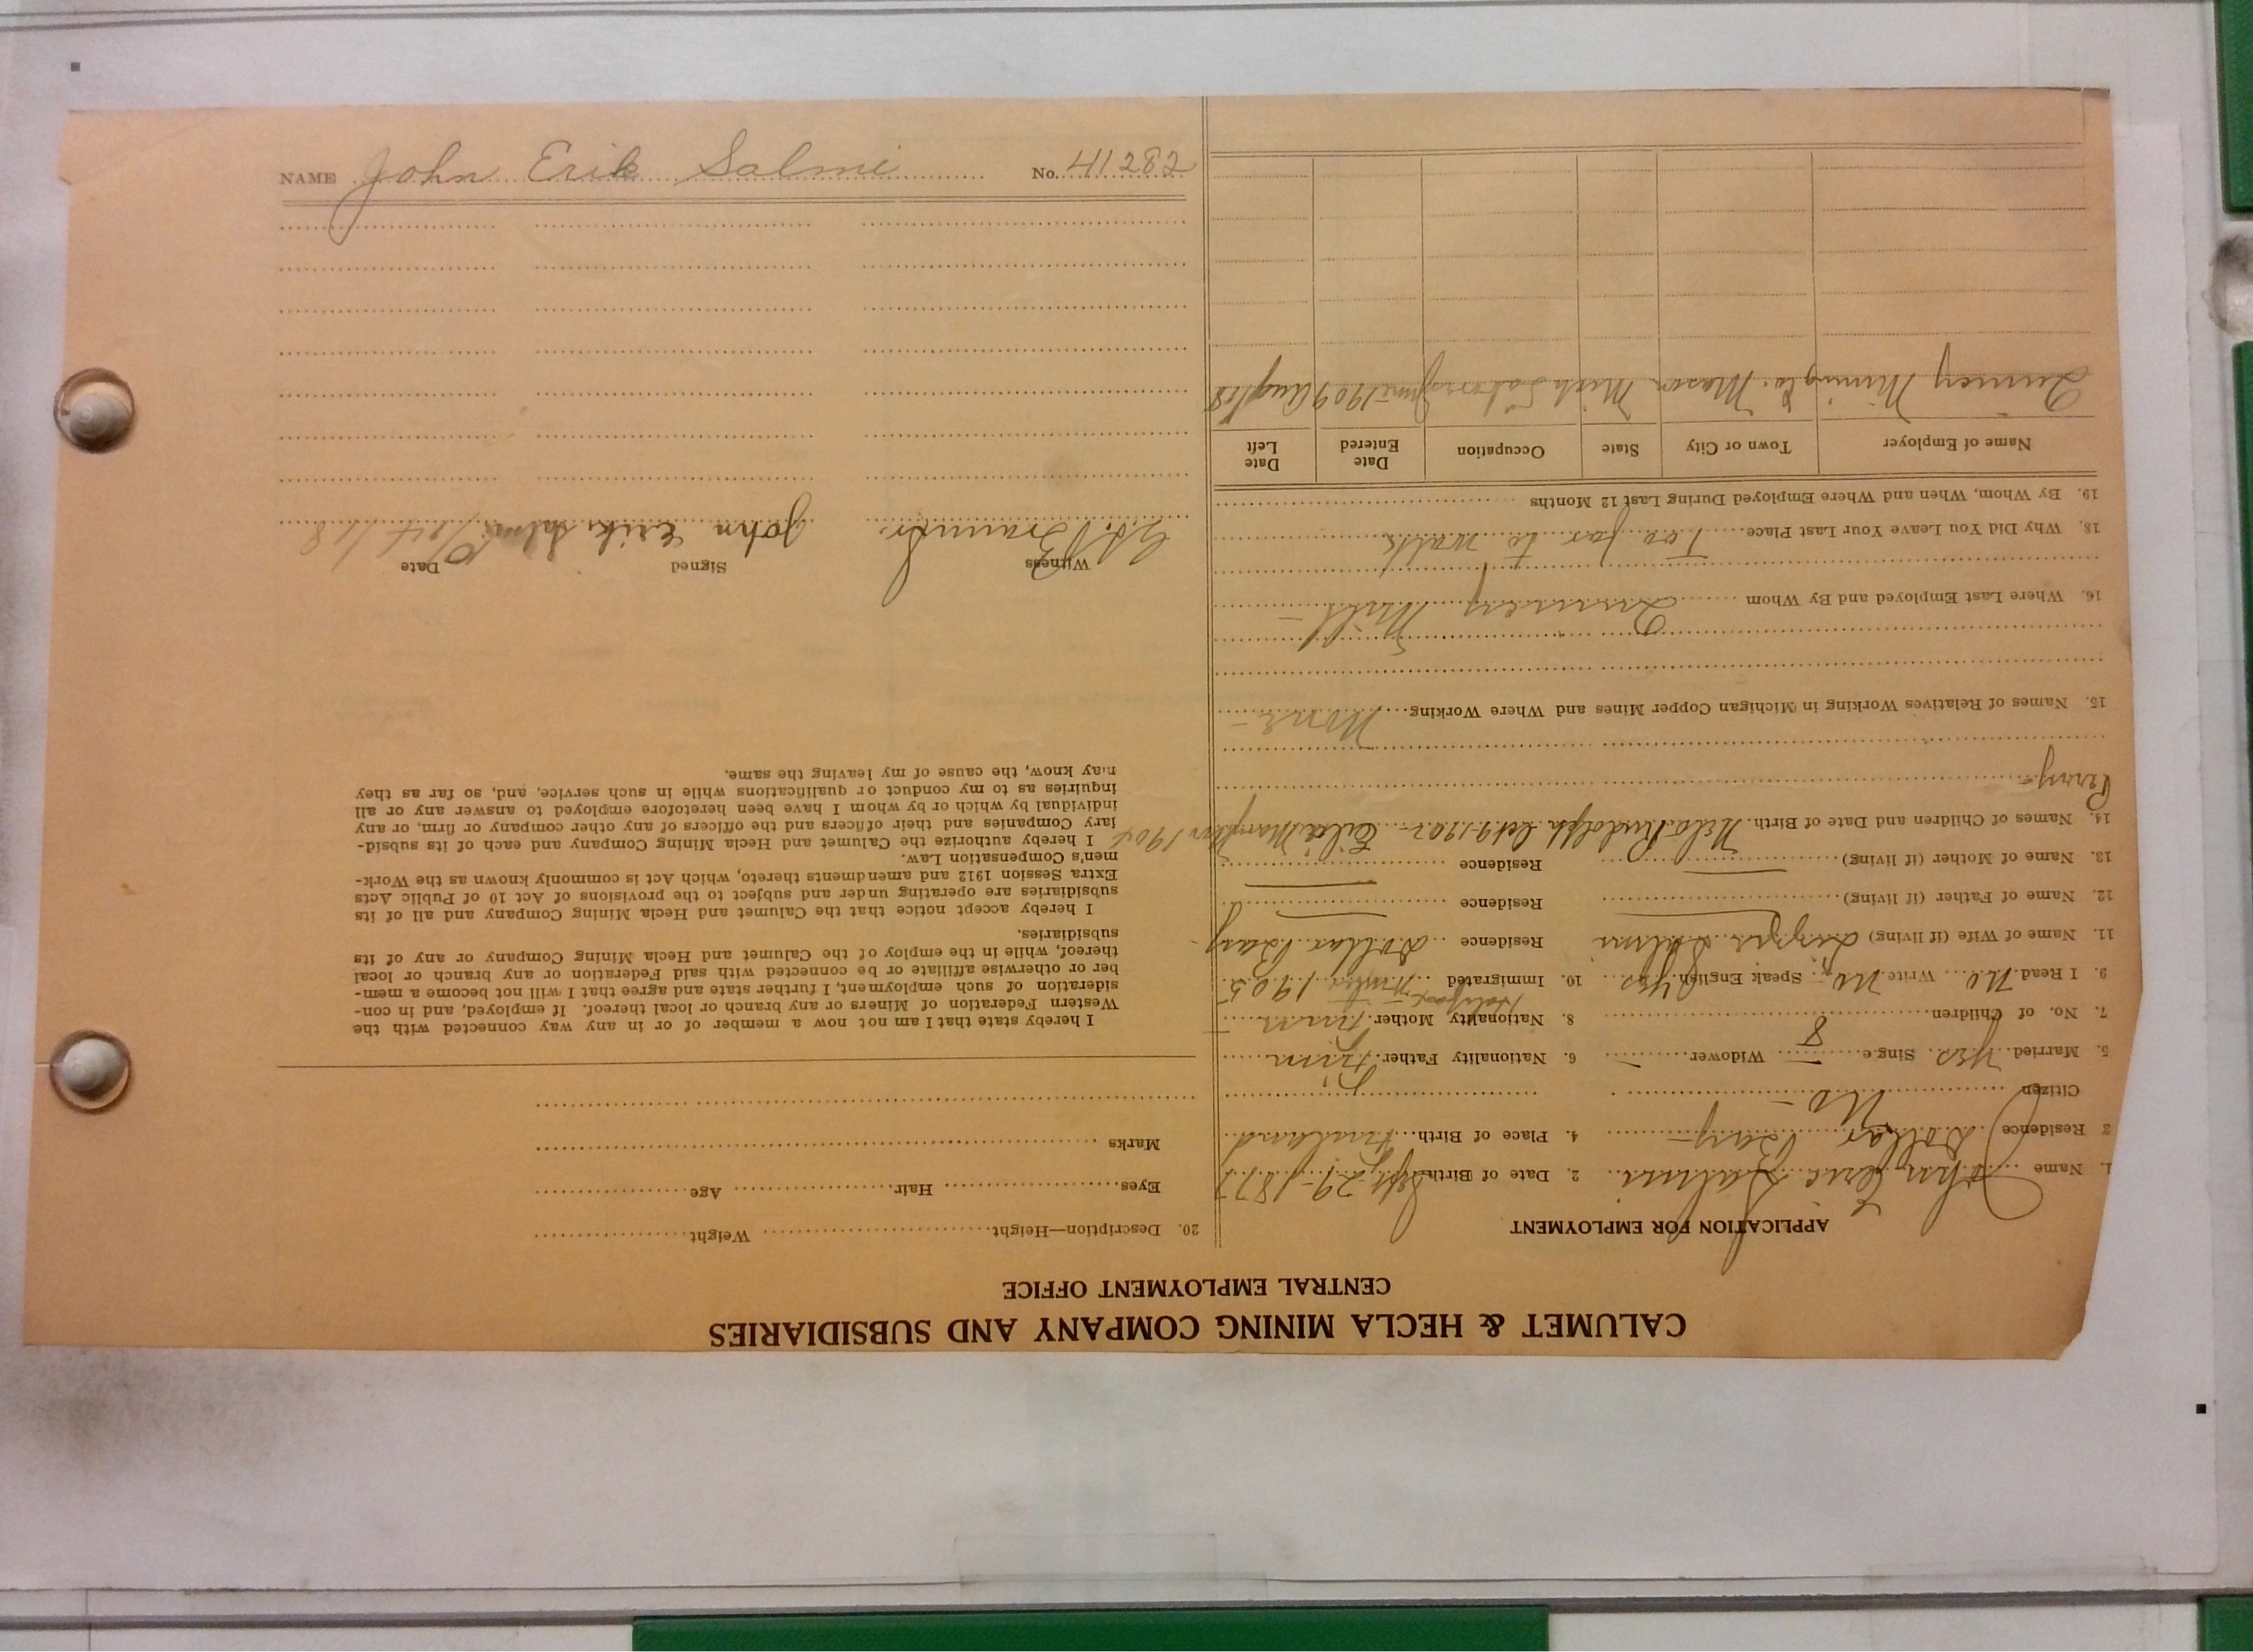 NAME John Erik Salmi No. 41282
CALUMET & HECLA MINING COMPANY AND SUBSIDIARIES
CENTRAL EMPLOYMENT OFFICE
APPLICATION FOR EMPLOYMENT
1. Name John Eric Salmi 2. Date of Birth Sept. 29-1877
3 Residence Dollar Bay 4. Place of Birth Finland
Citizen No
5. Married Yes Single Widower 6. Nationality Father Finn
7. No. of Children 8 8. Nationality Mother Finn
9. I Read No Write No Speak English Yes 10. Immigrated 1905
11. Name of Wife (if living) Salmi Residence Dollar Bay
12. Name of Father (if living) Residence
13. Name of Mother (if living) Residence
14. Names of Children and Date of Birth Rudolph Oct 9-1902 1904
15. Names of Relatives Working in Michigan Copper Mines and Where Working None
16. Where Last Employed and By Whom Quincy Mill
18. Why Did You Leave Your Last Place Too far to walk
19. By Whom, When and Where Employed During Last 12 Months
Name of Employer Town or City State Occupation Date Entered Date Left
Quincy Mining Co. Mason Mich Laborer June 1909 Aug/18
20. Description—Height Weight
Eyes Hair Age
Marks
I hereby state that I am not now a member of or in any way connected with the
Western Federation of Miners or any branch or local thereof. If employed, and in con-
sideration of such employment, I further state and agree that I will not become a mem-
ber or otherwise affiliate or be connected with said Federation or any branch or local
thereof, while in the employ of the Calumet and Hecla Mining Company or any of its
subsidiaries.
I hereby accept notice that the Calumet and Hecla Mining Company and all of its
subsidiaries are operating under and subject to the provisions of Act 10 of Public Acts
Extra Session 1912 and amendments thereto, which Act is commonly known as the Work-
men's Compensation Law.
I hereby authorize the Calumet and Hecla Mining Company and each of its subsid-
iary Companies and their officers and the officers of any other company or firm, or any
individual by which or by whom I have been heretofore employed to answer any or all
inquiries as to my conduct or qualifications while in such service, and, so far as they
may know, the cause of my leaving the same.
Witness Signed Date
John Erik Salmi